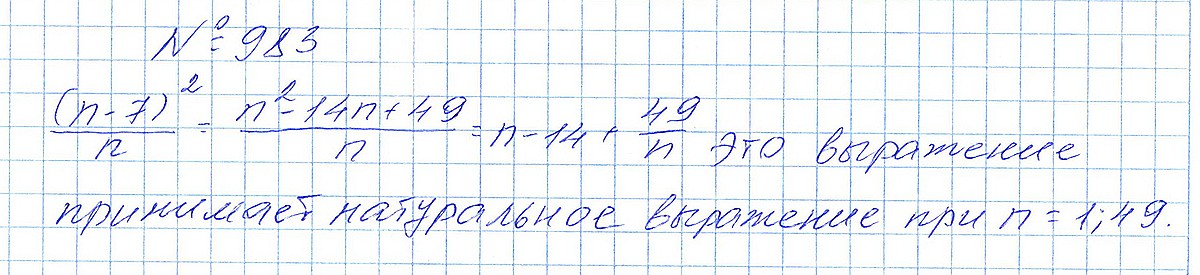 № 983
(n-7)²/n = n²-14n+49/n = n-14+ 49/n это выражение
принимает натуральное выражение при n = 1; 49.